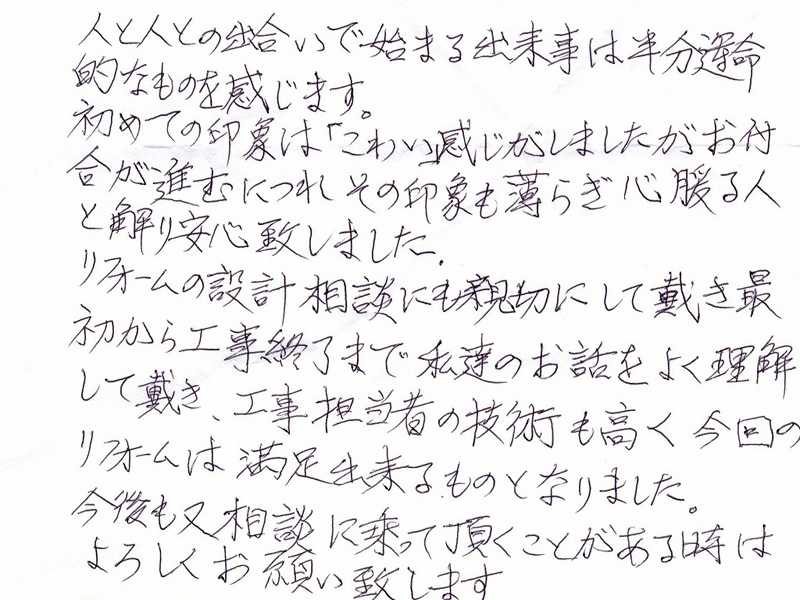 人と人との出合いで始まる出来事は半分運命
的なものを感じます。
初めての印象は「こわい」感じがしましたがお付
合が進むにつれその印象も薄らぎ心暖る人
と解り安心致しました.
リフォームの設計相談にも親切にして戴き最
初から工事終了まで私達のお話をよく理解
して戴き、工事担当者の技術も高く今回の
リフォームは満足出来るものとなりました。
今後も又相談に乗って頂くことがある時は
よろしくお願い致します